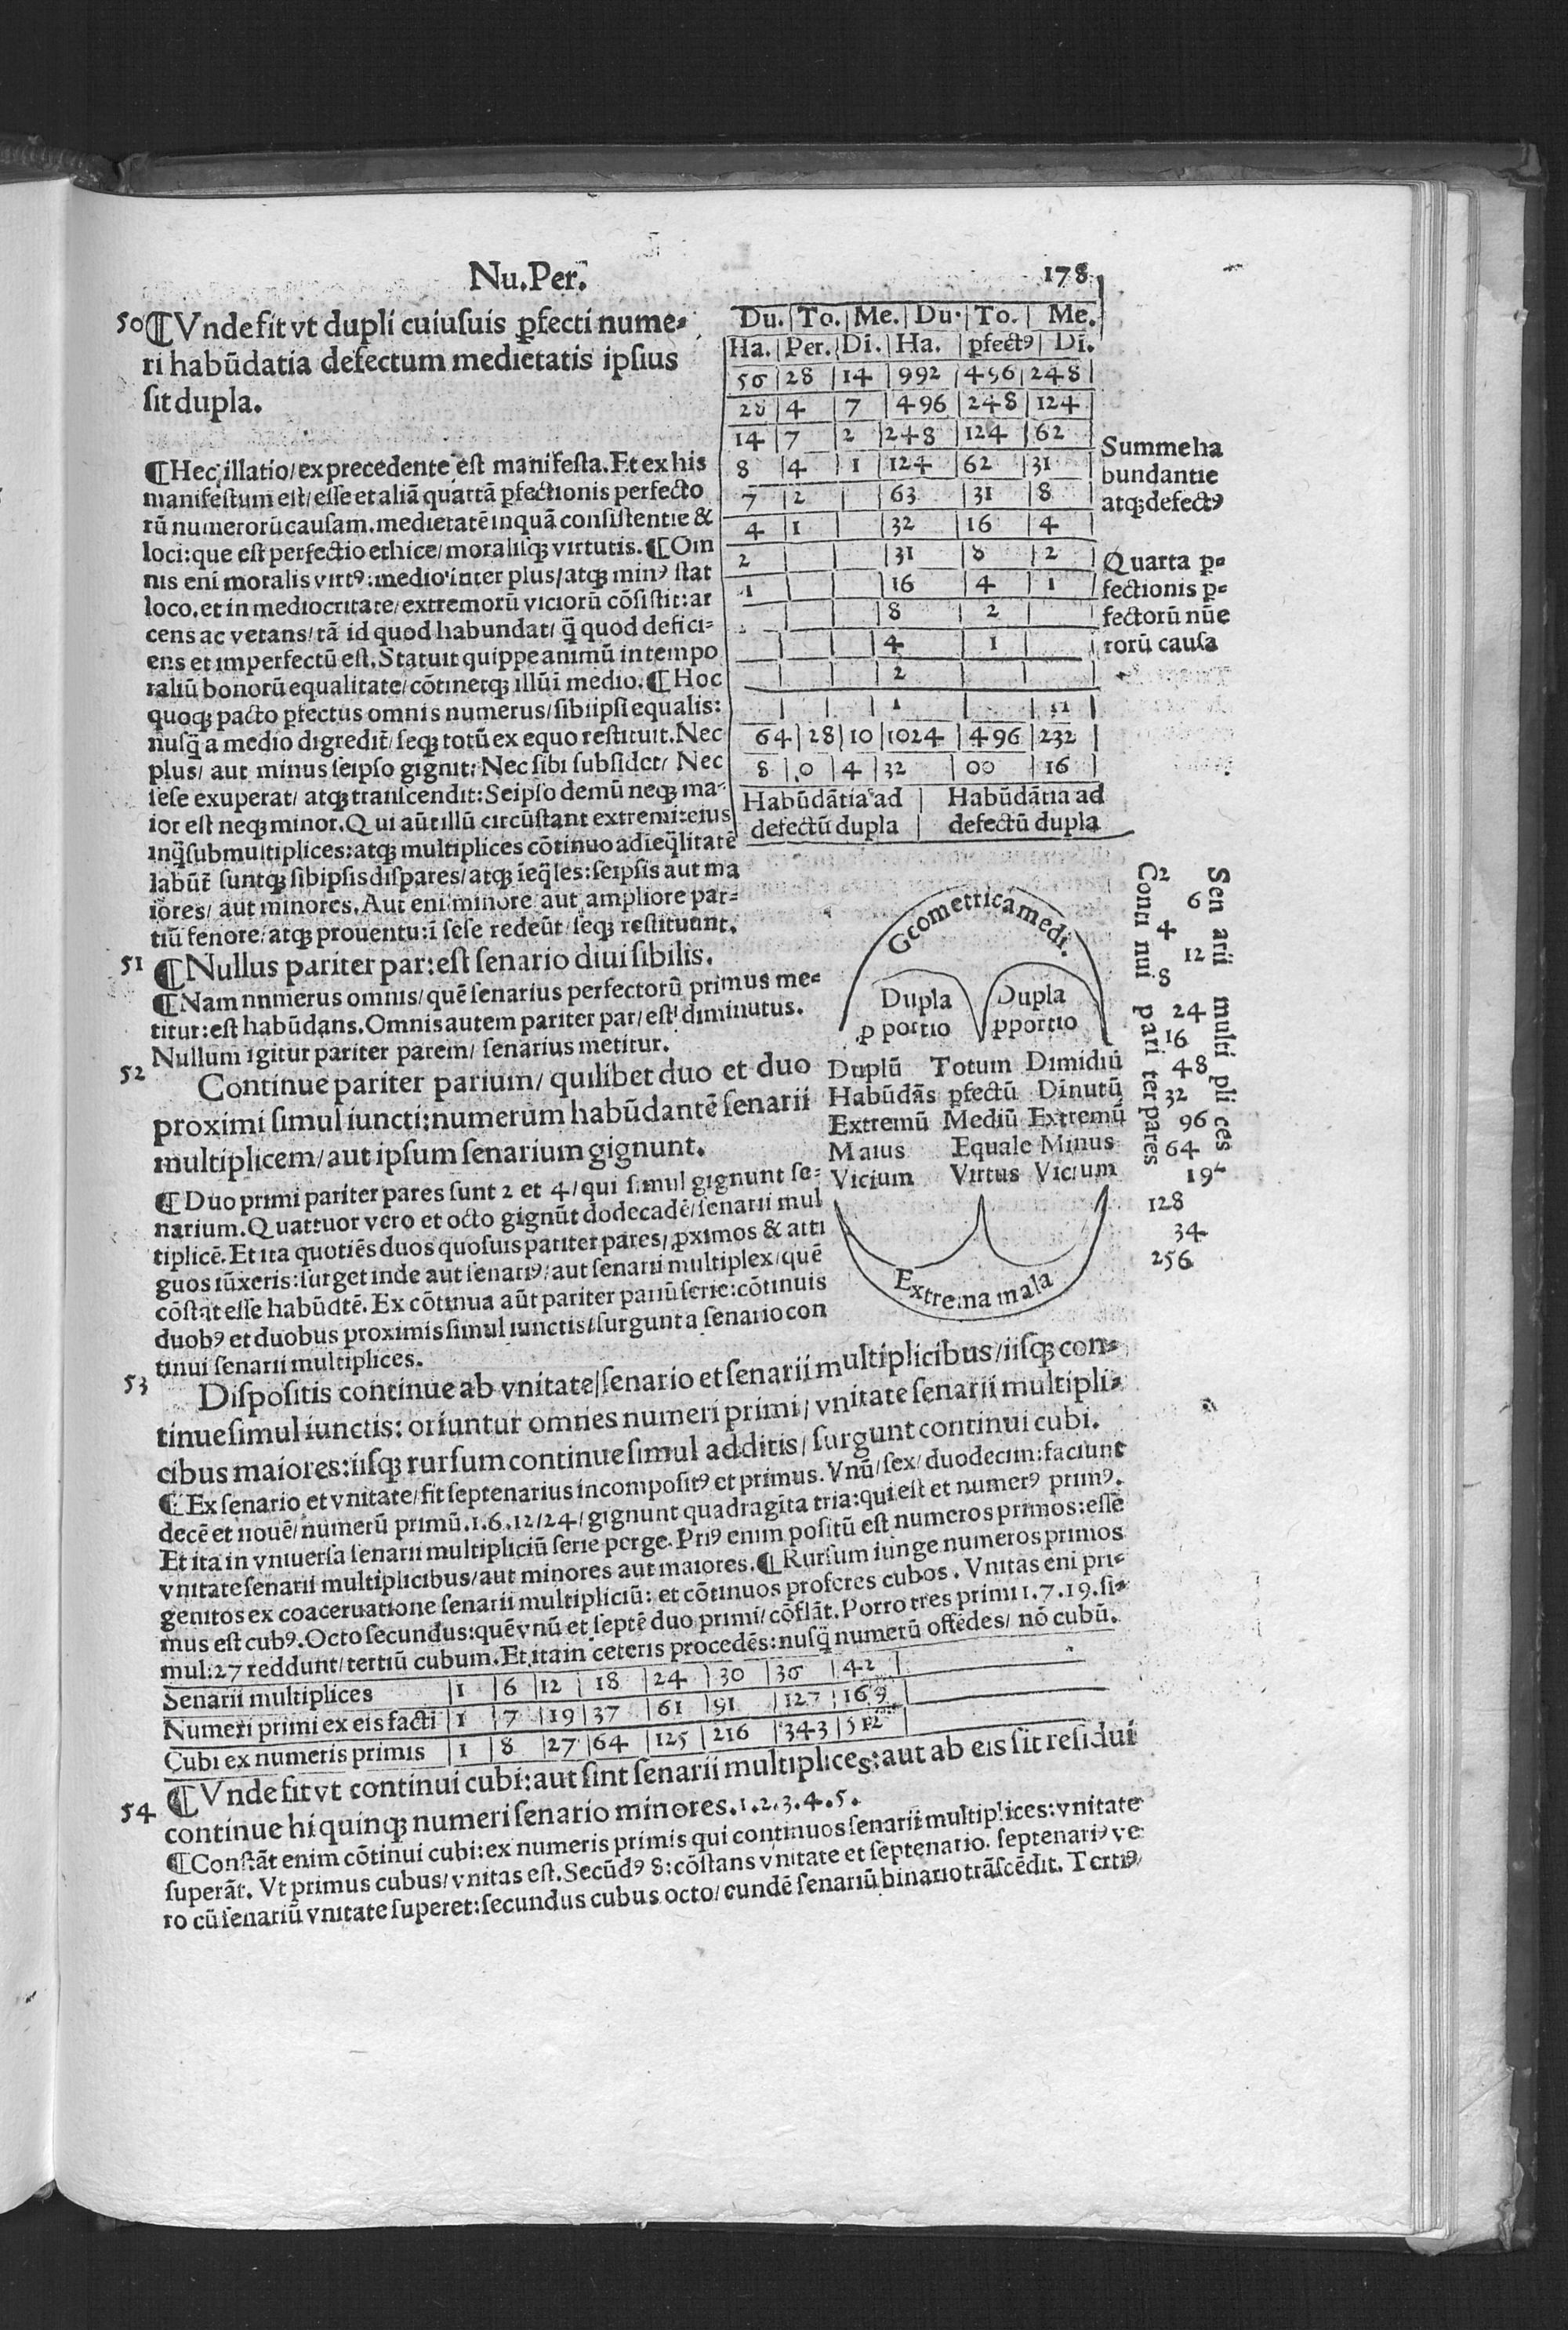 Nu.Per. 178
50 ¶Vnde fit vt dupli cuiuſuis ꝑfecti nume-
ri habūdatia defectum medietatis ipſius
ſit dupla.
¶Hec illatio/ex precedente eſt manifeſta. Et ex his
manifeſtum eſt/eſſe et aliā quartā ꝑfectionis perfecto
rū numerorū cauſam.medietatē inquā conſiſtentie &
loci:que eſt perfectio ethice/moraliſqꝫ virtutis.¶Om
nis eni moralis virtꝰ:medio inter plus/atqꝫ minꝰ ſtat
loco.et in mediocritate/extremorū viciorū cōſiſtit:ar
cens ac vetans/tā id quod habundat/ q̄ quod defici-
ens et imperfectū eſt.Statuit quippe animū in tempo
raliū bonorū equalitate/cōtinetqꝫ illū i medio.¶Hoc
quoqꝫ pacto ꝑfectus omnis numerus/ſibiipſi equalis:
nuſq̄ a medio digredit̄/ſeqꝫ totū ex equo reſtituit.Nec
plus/ aut minus ſeipſo gignit: Nec ſibi ſubſidet/ Nec
ſeſe exuperat/ atqꝫ tranſcendit: Seipſo demū neqꝫ ma-
ior eſt neqꝫ minor.Qui aūt illū circūſtant extremi:eius
inq̄ ſubmultiplices:atqꝫ multiplices cōtinuo ad ieq̄litatē
labūt̄ ſuntqꝫ ſibipſis diſpares/atqꝫ ieq̄les:ſeipſis aut ma
iores/ aut minores.Aut eni minore aut ampliore par-
tiū fenore/atqꝫ prouentu:i ſeſe redeūt/ſeqꝫ reſtituunt.
Du. | To. | Me. | Du. | To. | Me.
Ha. | Per. | Di. | Ha. | ꝑfectꝰ | Di.
56 | 28 | 14 | 992 | 496 | 248
28 | 4 | 7 | 496 | 248 | 124
14 | 7 | 2 | 248 | 124 | 62
8 | 4 | 1 | 124 | 62 | 31
7 | 2 | | 63 | 31 | 8
4 | 1 | | 32 | 16 | 4
2 | | | 31 | 8 | 2
1 | | | 16 | 4 | 1
| | | 8 | 2 |
| | | 4 | 1 |
| | | 2 | |
| | | 1 | |
64 | 28 | 10 | 1024 | 496 | 232
8 | 0 | 4 | 32 | 00 | 16
Habūdātia ad | Habūdātia ad
defectū dupla | defectū dupla
Summe ha
bundantie
atqꝫ defectꝰ
Quarta ꝑ-
fectionis ꝑ-
fectorū nūe
rorū cauſa
51 ¶Nullus pariter par:eſt ſenario diuiſibilis.
¶Nam nnmerus omnis/quē ſenarius perfectorū primus me-
titur:eſt habūdans.Omnis autem pariter par/eſt diminutus.
Nullum igitur pariter parem/ ſenarius metitur.
52 Continue pariter parium/ quilibet duo et duo
proximi ſimul iuncti:numerum habūdantē ſenarii
multiplicem/aut ipſum ſenarium gignunt.
¶Duo primi pariter pares ſunt 2 et 4/qui ſimul gignunt ſe-
narium.Quattuor vero et octo gignūt dodecadē/ſenarii mul
tiplicē.Et ita quotiēs duos quoſuis pariter pares/ ꝓximos & atti
guos iūxeris:ſurget inde aut ſenariꝰ/aut ſenarii multiplex/quē
cōſtat eſſe habūdtē.Ex cōtinua aūt pariter pariū ſerie:cōtinuis
duobꝰ et duobus proximis ſimul iunctis/ſurgunt a ſenario con
tinui ſenarii multiplices.
Geometrica medi.
Dupla Dupla
ꝓportio ꝓportio
Duplū Totum Dimidiū
Habūdās ꝑfectū Dinutū
Extremū Mediū Extremū
Maius Equale Minus
Vicium Virtus Vicium
Extrema mala
Conti nui pari ter pares
Sen arii multi pli ces
2
6
4
12
8
24
16
48
32
96
64
192
128
34
256
53 Diſpoſitis continue ab vnitate/ſenario et ſenarii multiplicibus/iiſqꝫ con-
tinue ſimul iunctis: oriuntur omnes numeri primi/ vnitate ſenarii multipli-
cibus maiores:iiſqꝫ rurſum continue ſimul additis/ ſurgunt continui cubi.
¶Ex ſenario et vnitate/fit ſeptenarius incompoſitꝰ et primus.Vnū/ſex/duodecim:faciunt
decē et nouē/numerū primū.1.6.12/24/gignunt quadragīta tria:qui eſt et numerꝰ primꝰ.
Et ita in vniuerſa ſenarii multipliciū ſerie perge.Priꝰ enim poſitū eſt numeros primos:eſſē
vnitate ſenarii multiplicibus/aut minores aut maiores.¶Rurſum iunge numeros primos
genitos ex coaceruatione ſenarii multipliciū: et cōtinuos proferes cubos. Vnitas eni pri-
mus eſt cubꝰ.Octo ſecundus:quē vnū et ſeptē duo primi/cōflāt.Porro tres primi 1.7.19.ſi-
mul:27 reddunt/tertiū cubum.Et ita in ceteris procedēs:nuſq̄ numerū offēdes/ nō cubū.
Senarii multiplices | 1 | 6 | 12 | 18 | 24 | 30 | 36 | 42
Numeri primi ex eis facti | 1 | 7 | 19 | 37 | 61 | 91 | 127 | 169
Cubi ex numeris primis | 1 | 8 | 27 | 64 | 125 | 216 | 343 | 512
54 ¶Vnde fit vt continui cubi:aut ſint ſenarii multiplices:aut ab eis ſit reſidui
continue hi quinqꝫ numeri ſenario minores.1.2.3.4.5.
¶Conſtāt enim cōtinui cubi:ex numeris primis qui continuos ſenarii multiplices:vnitate
ſuperāt. Vt primus cubus/vnitas eſt.Secūdꝰ 8:cōſtans vnitate et ſeptenario. ſeptenariꝰ ve
ro cū ſenariū vnitate ſuperet:ſecundus cubus octo/ eundē ſenariū binario trāſcēdit. Tertiꝰ